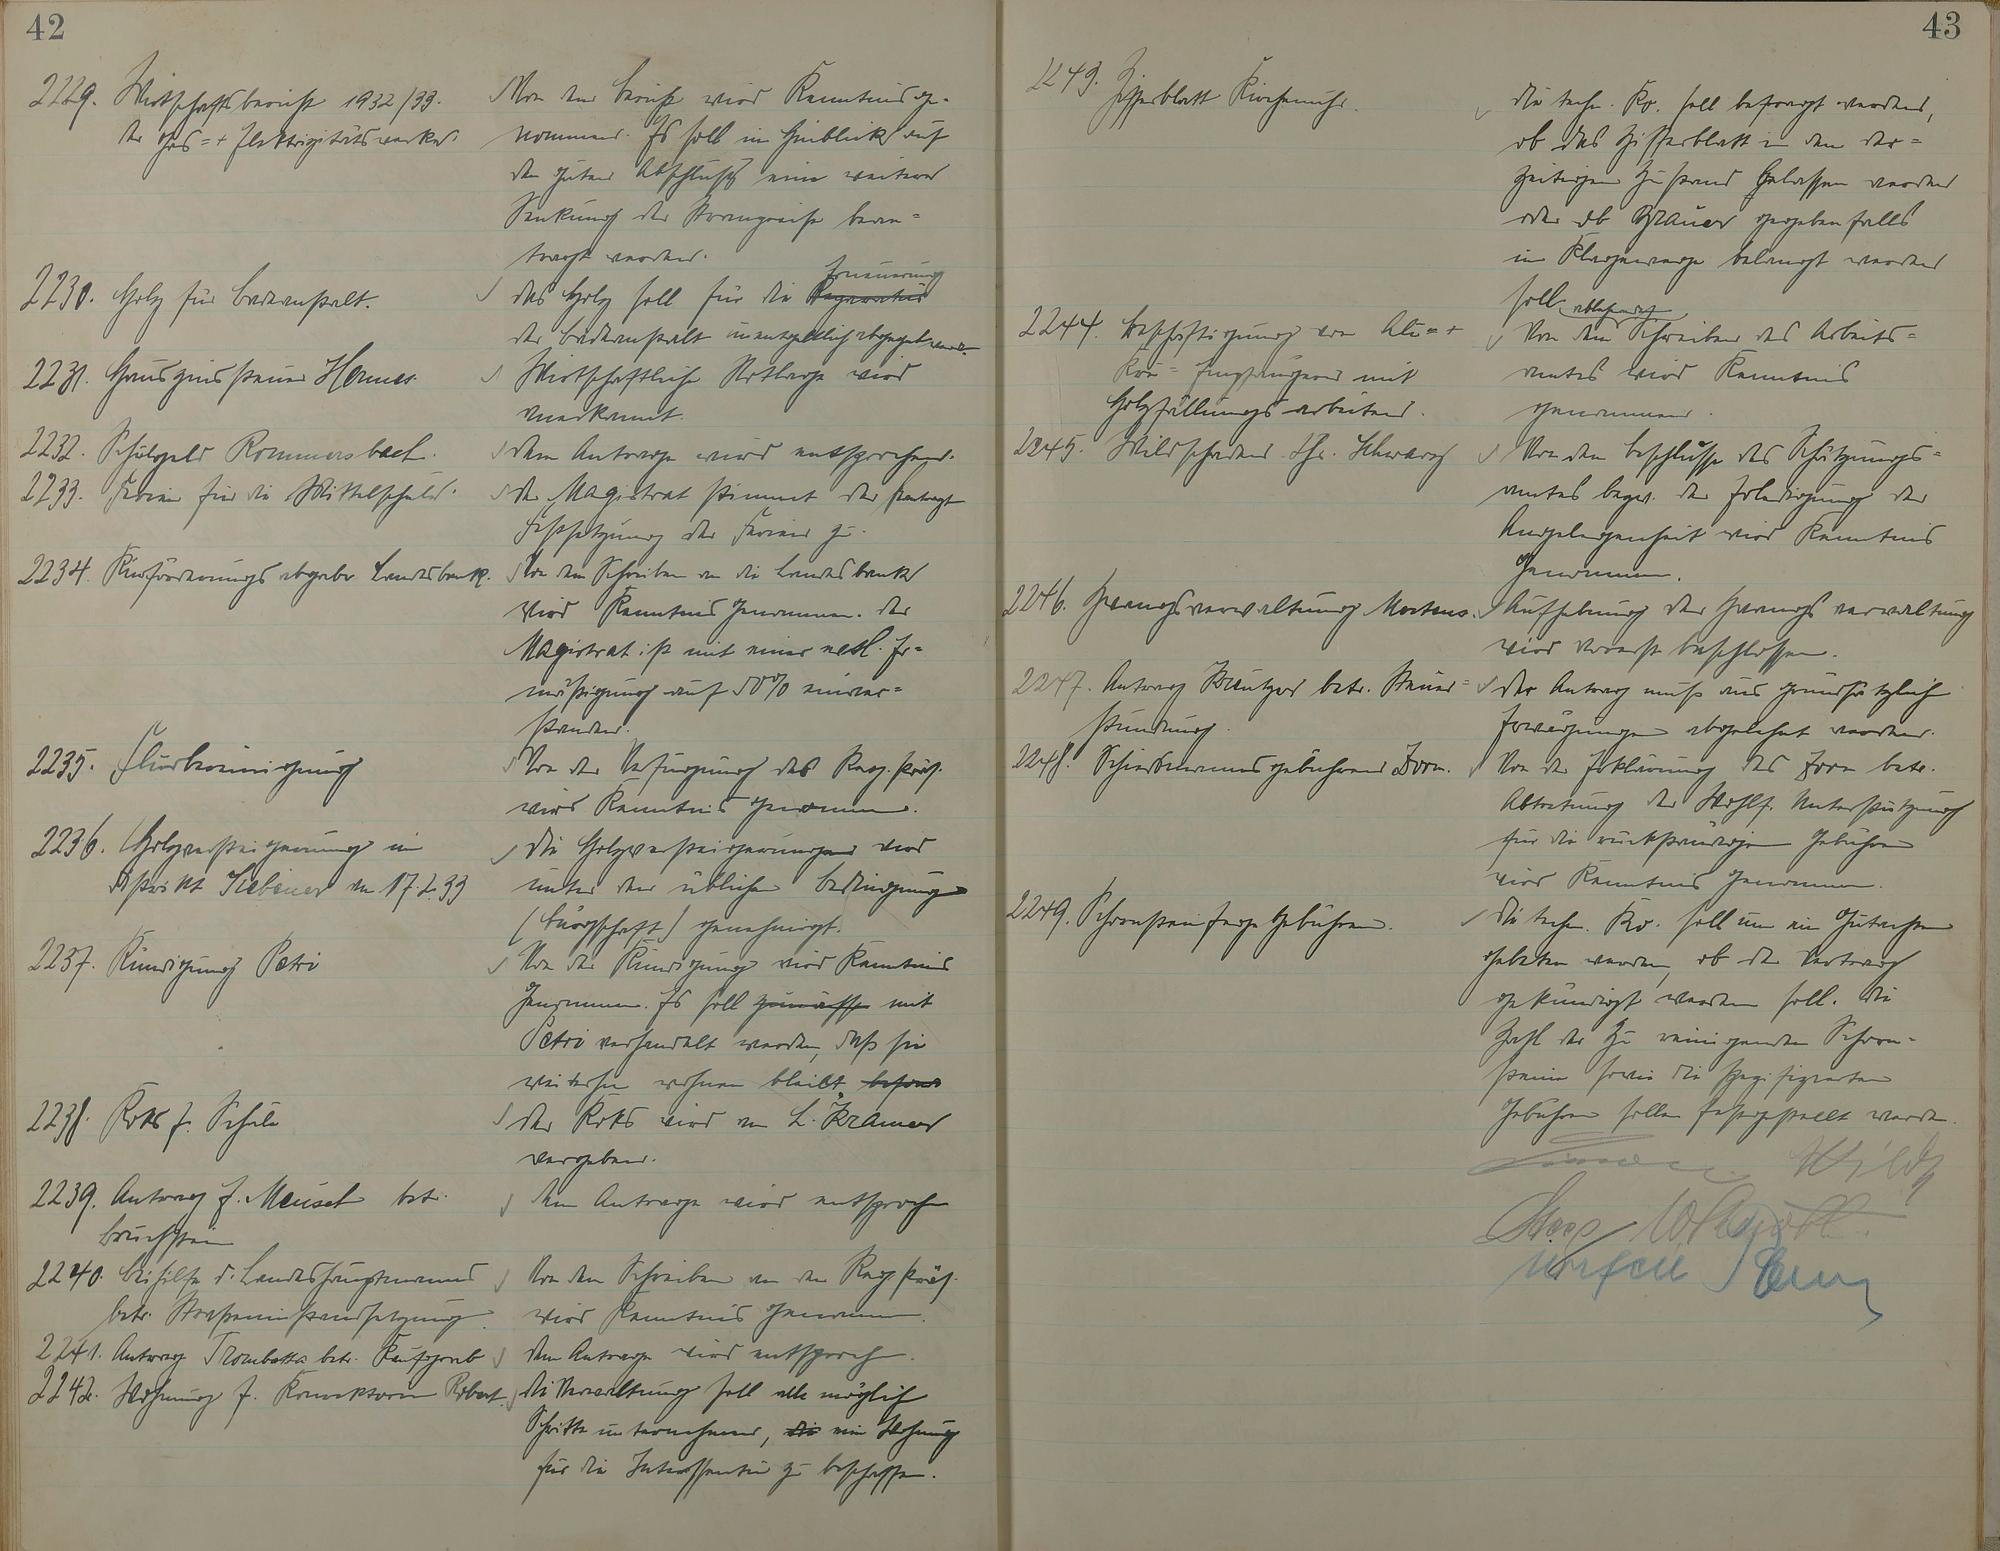 42
2229. Wirtschaftsbericht 1932/33.
der Gas= + Elektrizitätswerke.
Von dem Bericht wird Kenntnis ge-
nommen. Es soll im Hinblick auf
den guten Abschluß eine weitere
Senkung der Strompreise bean=
tragt werden.
2230. Holz für Badeanstalt.
Erneuerung
Das Holz soll für die Reparatur
der Badeanstalt unentgeltlich abgegeben werd.
2231. Hauszinssteuer Hermes.
Wirtschaftliche Notlage wird
anerkannt.
2232. Schulgeld Rommersbach.
Dem Antrage wird entsprochen.
2233. Ferien für die Mittelschule.
Der Magistrat stimmt der
Festsetzung der Ferien zu.
2234. Kurförderungsabgabe Landesbank.
Von dem Schreiben an die Landesbank
wird Kenntnis genommen. Der
Magistrat ist mit einer evtl. Er=
mäßigung auf 50% einver=
standen.
2235. Flurbereinigung
Von der Verfügung des Reg. Präs.
wird Kenntnis genommen.
2236. Holzversteigerung im
Distrikt am 17.2.33
Die Holzversteigerung wird
unter der üblichen Bedingung
(Bürgschaft) genehmigt.
2237. Kündigung Petri
Von der Kündigung wird Kenntnis
genommen. Es soll zunächst mit
Petri verhandelt werden, daß sie
weiterhin wohnen bleibt
2238. Koks f. Schule
Der Koks wird an L. Kramer
vergeben.
2239. Antrag F. Meuset betr.
Bruchstein
Dem Antrage wird entsprochen
2240. Beihilfe d. Landeshauptmanns
betr. Straßeninstandsetzung.
Von dem Schreiben an den Reg. Präs.
wird Kenntnis genommen.
2241. Antrag Trombetta betr. Kaufgrab
Dem Antrage wird entsproch.
2242. Wohnung f. Konrektorin Robert.
Die Verwaltung soll alle möglich
Schritte unternehmen, die eine Wohnung
für die Interessentin zu beschaffen.
43
2243. Zifferblatt Kirchenuhr.
Die techn. Ko. soll befragt werden,
ob das Zifferblatt in dem der=
zeitigen Zustand gelassen werden
oder ob Brauer gegebenfalls
im Klagewege belangt werden
soll.
2244. Beschäftigung von Alu= +
Kru= Empfängern mit
Holzfällungsarbeiten.
ablehnenden
Von dem Schreiben des Arbeits=
amtes wird Kenntnis
genommen.
2245. Wildschaden Chr. Schwarz
Von dem Beschlusse des Schätzungs=
amtes bezw. der Erledigung der
Angelegenheit wird Kenntnis
genommen.
2246. Zwangsverwaltung Martens.
Aufhebung der Zwangsverwaltung
wird vorerst beschlossen.
2247. Antrag betr. Steuer=
stundung.
Der Antrag muß aus grundsätzlich
Erwägungen abgelehnt werden.
2248. Schiedsmannsgebühren Zorn.
Von der Erklärung des Zorn betr.
Abtretung der Wohlf. Unterstützung
für die rückständigen Gebühren
wird Kenntnis genommen.
2249. Schornsteinfegegebühren.
Die techn. Ko. soll um ein Gutachten
gebeten werden, ob der Vertrag
gekündigt werden soll. Die
Zahl der zu reinigenden Schorn-
steine sowie die spezifizierten
Gebühren sollen festgestellt werden.